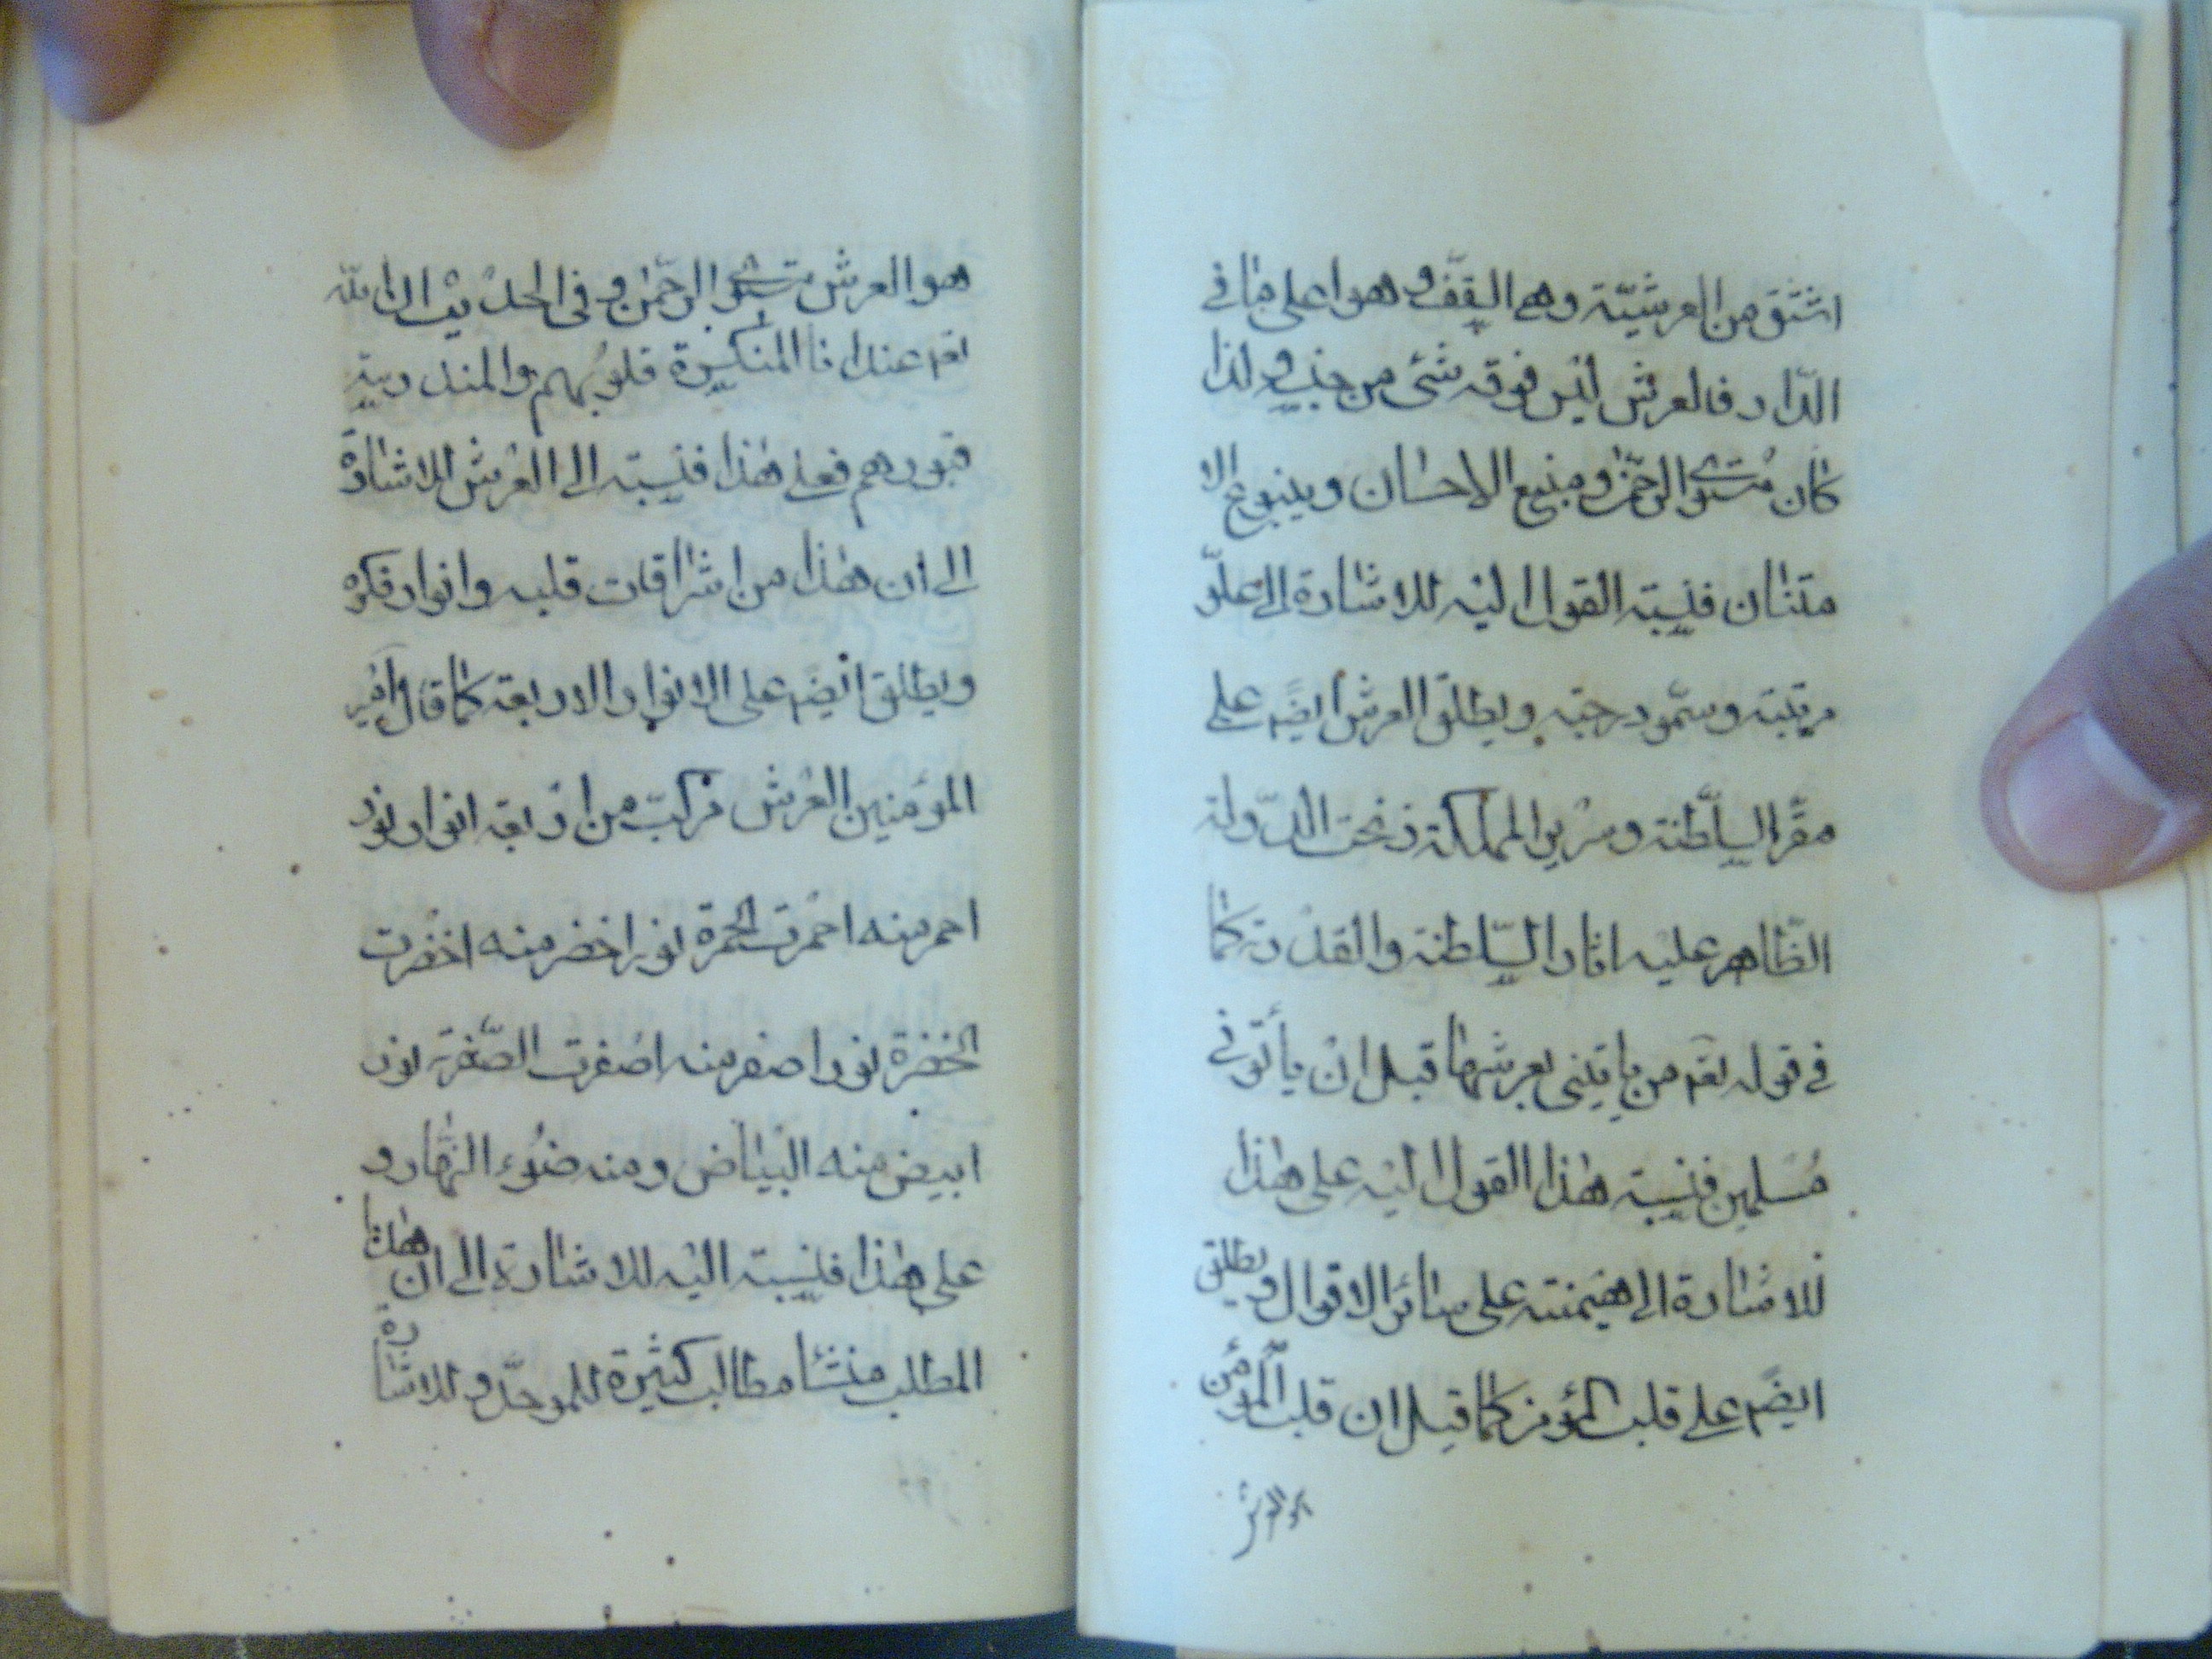 اشتق من العرشيّة وهى السّقف وهو اعلى ما فى
الدّار فالعرش ليس فوقه شئ من جنسه ولذا
كان مستوى الرحمن ومنبع الاحسان وينبوع الا
متنان فنسبته القول اليه للاشارة الى علوّ
مرتبته وسموّ درجته ويطلق العرش ايضً على
مقرّ السلطنة وسرير المملكة وتحت الدّولة
الظاهر عليه اثار السّلطنة والقدرة كما
فى قوله تعم من ياتينى بعرشها قبل ان يأتونى
مسلمين فنسبة هذا القول اليه على هذا
للاشارة الى هيمنته على سائر الاقوال ويطلق
ايضً على قلب المؤمن كما قيل ان قلب المؤمن
هو العرش
هو العرش مستوى الرحمن وفى الحديث ان الله
تعم عند انا المنكسرة قلوبهم والمندرسة
قبورهم فعلى هذا فنسبته الى العرش للاشارة
الى ان هذا من اشراقات قلبه وانوار فكره
ويطلق ايضً على الانوار الاربعة كما قال امير
المؤمنين العرش مركب من اربعة انوار نور
احمر منه احمرت الحمرة نور اخضر منه اخضرت
الخضرة نور اصفر منه اصفرت الصّفرة نور
ابيض منه البياض ومنه ضوء النّهار و
على هذا فنسبته اليه للاشارة الى ان هذا
المطلب منشأ مطالب كثيرة للموحّد وللاشارة